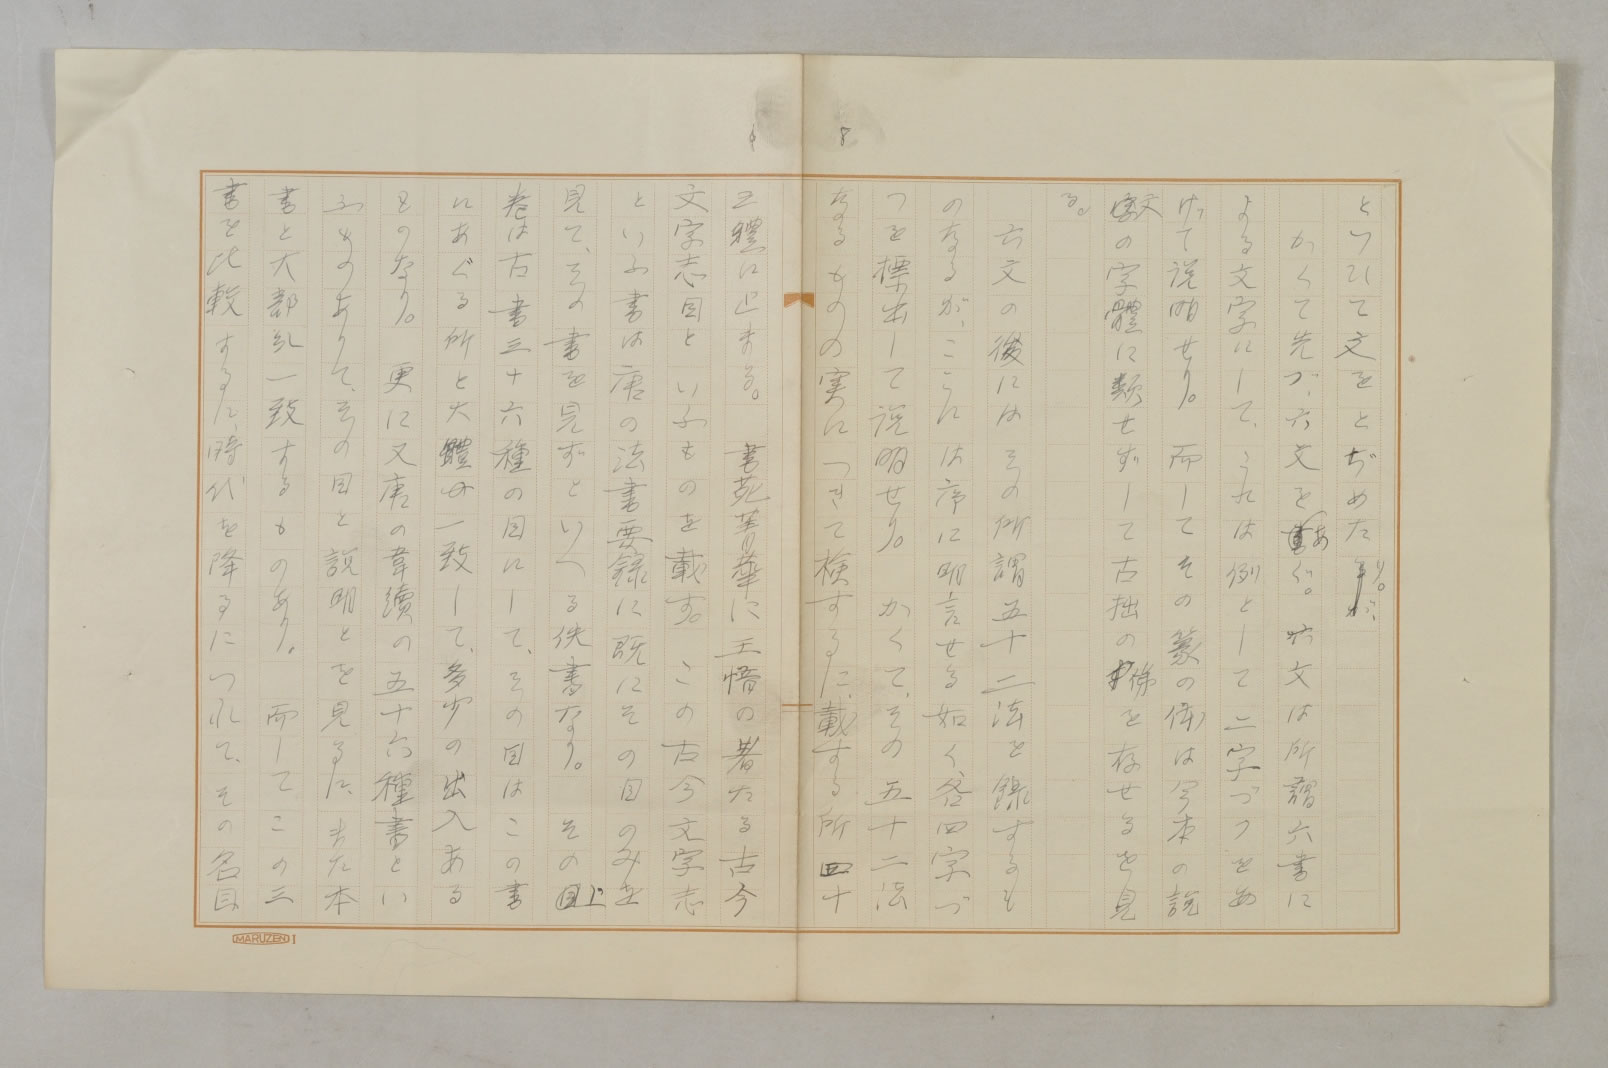 8
といひて文をとぢめたり。
かくて先づ、六文をあぐ。六文は所謂六書に
よる文字にして、これは例として二字づつをあ
げて説明せり。而してその篆の傍は今本の説
文の字體に類せずして古拙の俤を存せるを見
る。
六文の後にはその所謂五十二法を錄するも
のなるが、ここには序に明言せる如く各四字づ
つを標出して説明せり。かくて、その五十二法
なるものの実につきて検するに、載する所四十
9
三體に止まる。書苑菁華に王愔の著たる古今
文字志目といふものを載す。この古今文字志
といふ書は唐の法書要録に既にその目のみを
見て、その書を見ずといへる佚書なり。その目上
巻は古書三十六種の目にして、その目はこの書
にあぐる所と大體は一致して、多少の出入ある
ものなり。更に又唐の韋續の五十六種書とい
ふものありて、その目と説明とを見るに、また本
書と大部分一致するものあり。而して、この三
書を比較するに、時代を降るにつれて、その名目
MARUZEN I